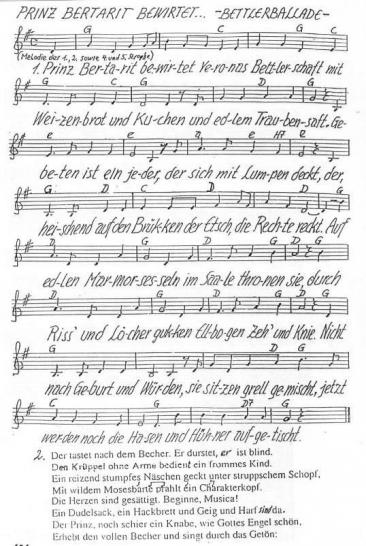 PRINZ BERTARIT BEWIRTET... -BETTLERBALLADE-
G C G C
(Melodie der 1., 2. sowie 4. und 5. Strophe)
1. Prinz Ber-ta-rit be-wir-tet Ve-ro-nas Bett-ler-schaft mit
G C G D G
Wei-zen-brot und Ku-chen und ed-lem Trau-ben-saft. Ge-
e e a H7 e
be-ten ist ein je-der, der sich mit Lum-pen deckt, der,
G D C D D G
hei-schend auf den Brük-ken der Etsch, die Rech-te reckt. Auf
D G D G
ed-len Mar-mor-ses-seln im Saa-le thro-nen sie, durch
D G D G
Riss' und Lö-cher guk-ken Ell-bo-gen Zeh' und Knie. Nicht
G G C G
nach Ge-burt und Wür-den, sie sit-zen grell ge-mischt, jetzt
C G D7 G
wer-den noch die Ha-sen und Hüh-ner auf-ge-tischt.
2. Der tastet nach dem Becher. Er durstet, er ist blind.
Den Krüppel ohne Arme bedient ein frommes Kind.
Ein reizend stumpfes Näschen geckt unter struppschem Schopf,
Mit wildem Mosesbarte prahlt ein Charakterkopf.
Die Herzen sind gesättigt. Beginne, Musica!
Ein Dudelsack, ein Hackbrett und Geig und Harf sind da.
Der Prinz, noch schier ein Knabe, wie Gottes Engel schön,
Erhebt den vollen Becher und singt durch das Getön: